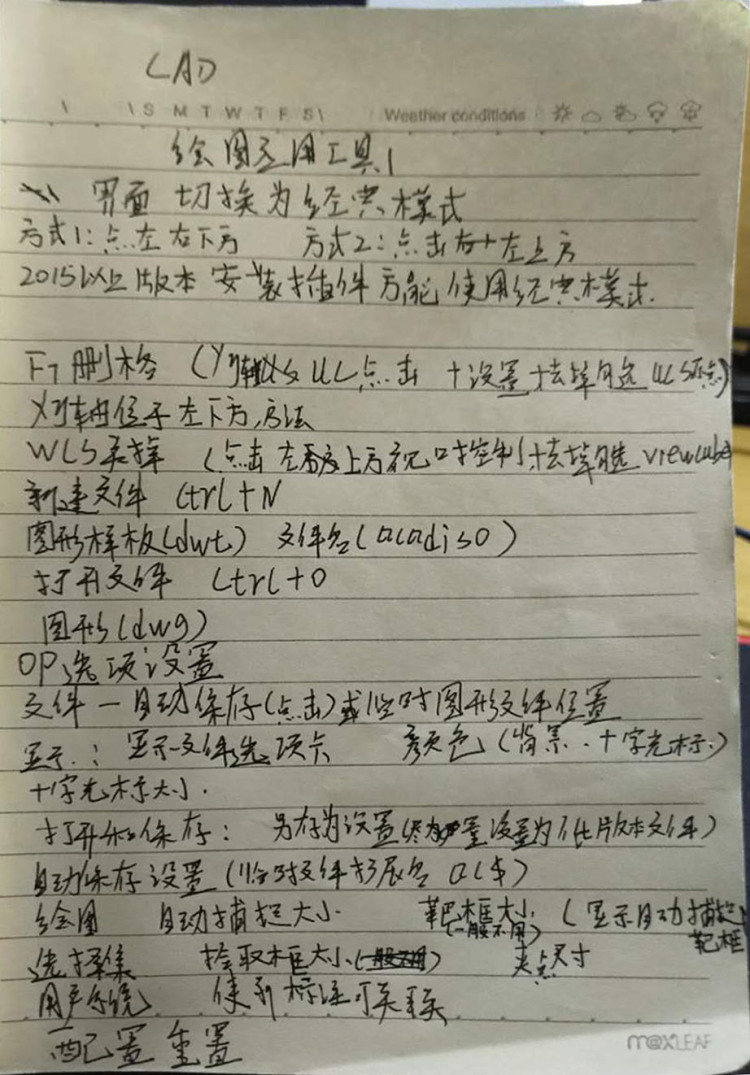 CAD
S M T W T F S Weather conditions
绘图应用工具1
界面 切换为经典模式
方式1:点左右下方 方式2:点击右+左上方
2015以上版本 安装插件方能使用经典模式.
F7删格 (XY轴 点击 +设置+去掉勾选UCS原点)
XY轴位于左下方,方法
WCS罗盘 (点击左上方视口控制+去掉勾选viewcube)
新建文件 Ctrl+N
图形样板(dwt) 文件名(acadiso)
打开文件 Ctrl+O
图形(dwg)
OP选项设置
文件—自动保存(点击)或临时图形文件位置
显示:显示文件选项卡 颜色(背景.十字光标.)
十字光标大小.
打开和保存: 另存为设置(尽量设置为低版本文件)
自动保存设置(临时文件扩展名 ac$)
绘图 自动捕捉大小. 靶框大小(显示自动捕捉靶框
(一般不用)
选择集 拾取框大小 夹点尺寸
用户系统
配置 重置
m@xLEAF